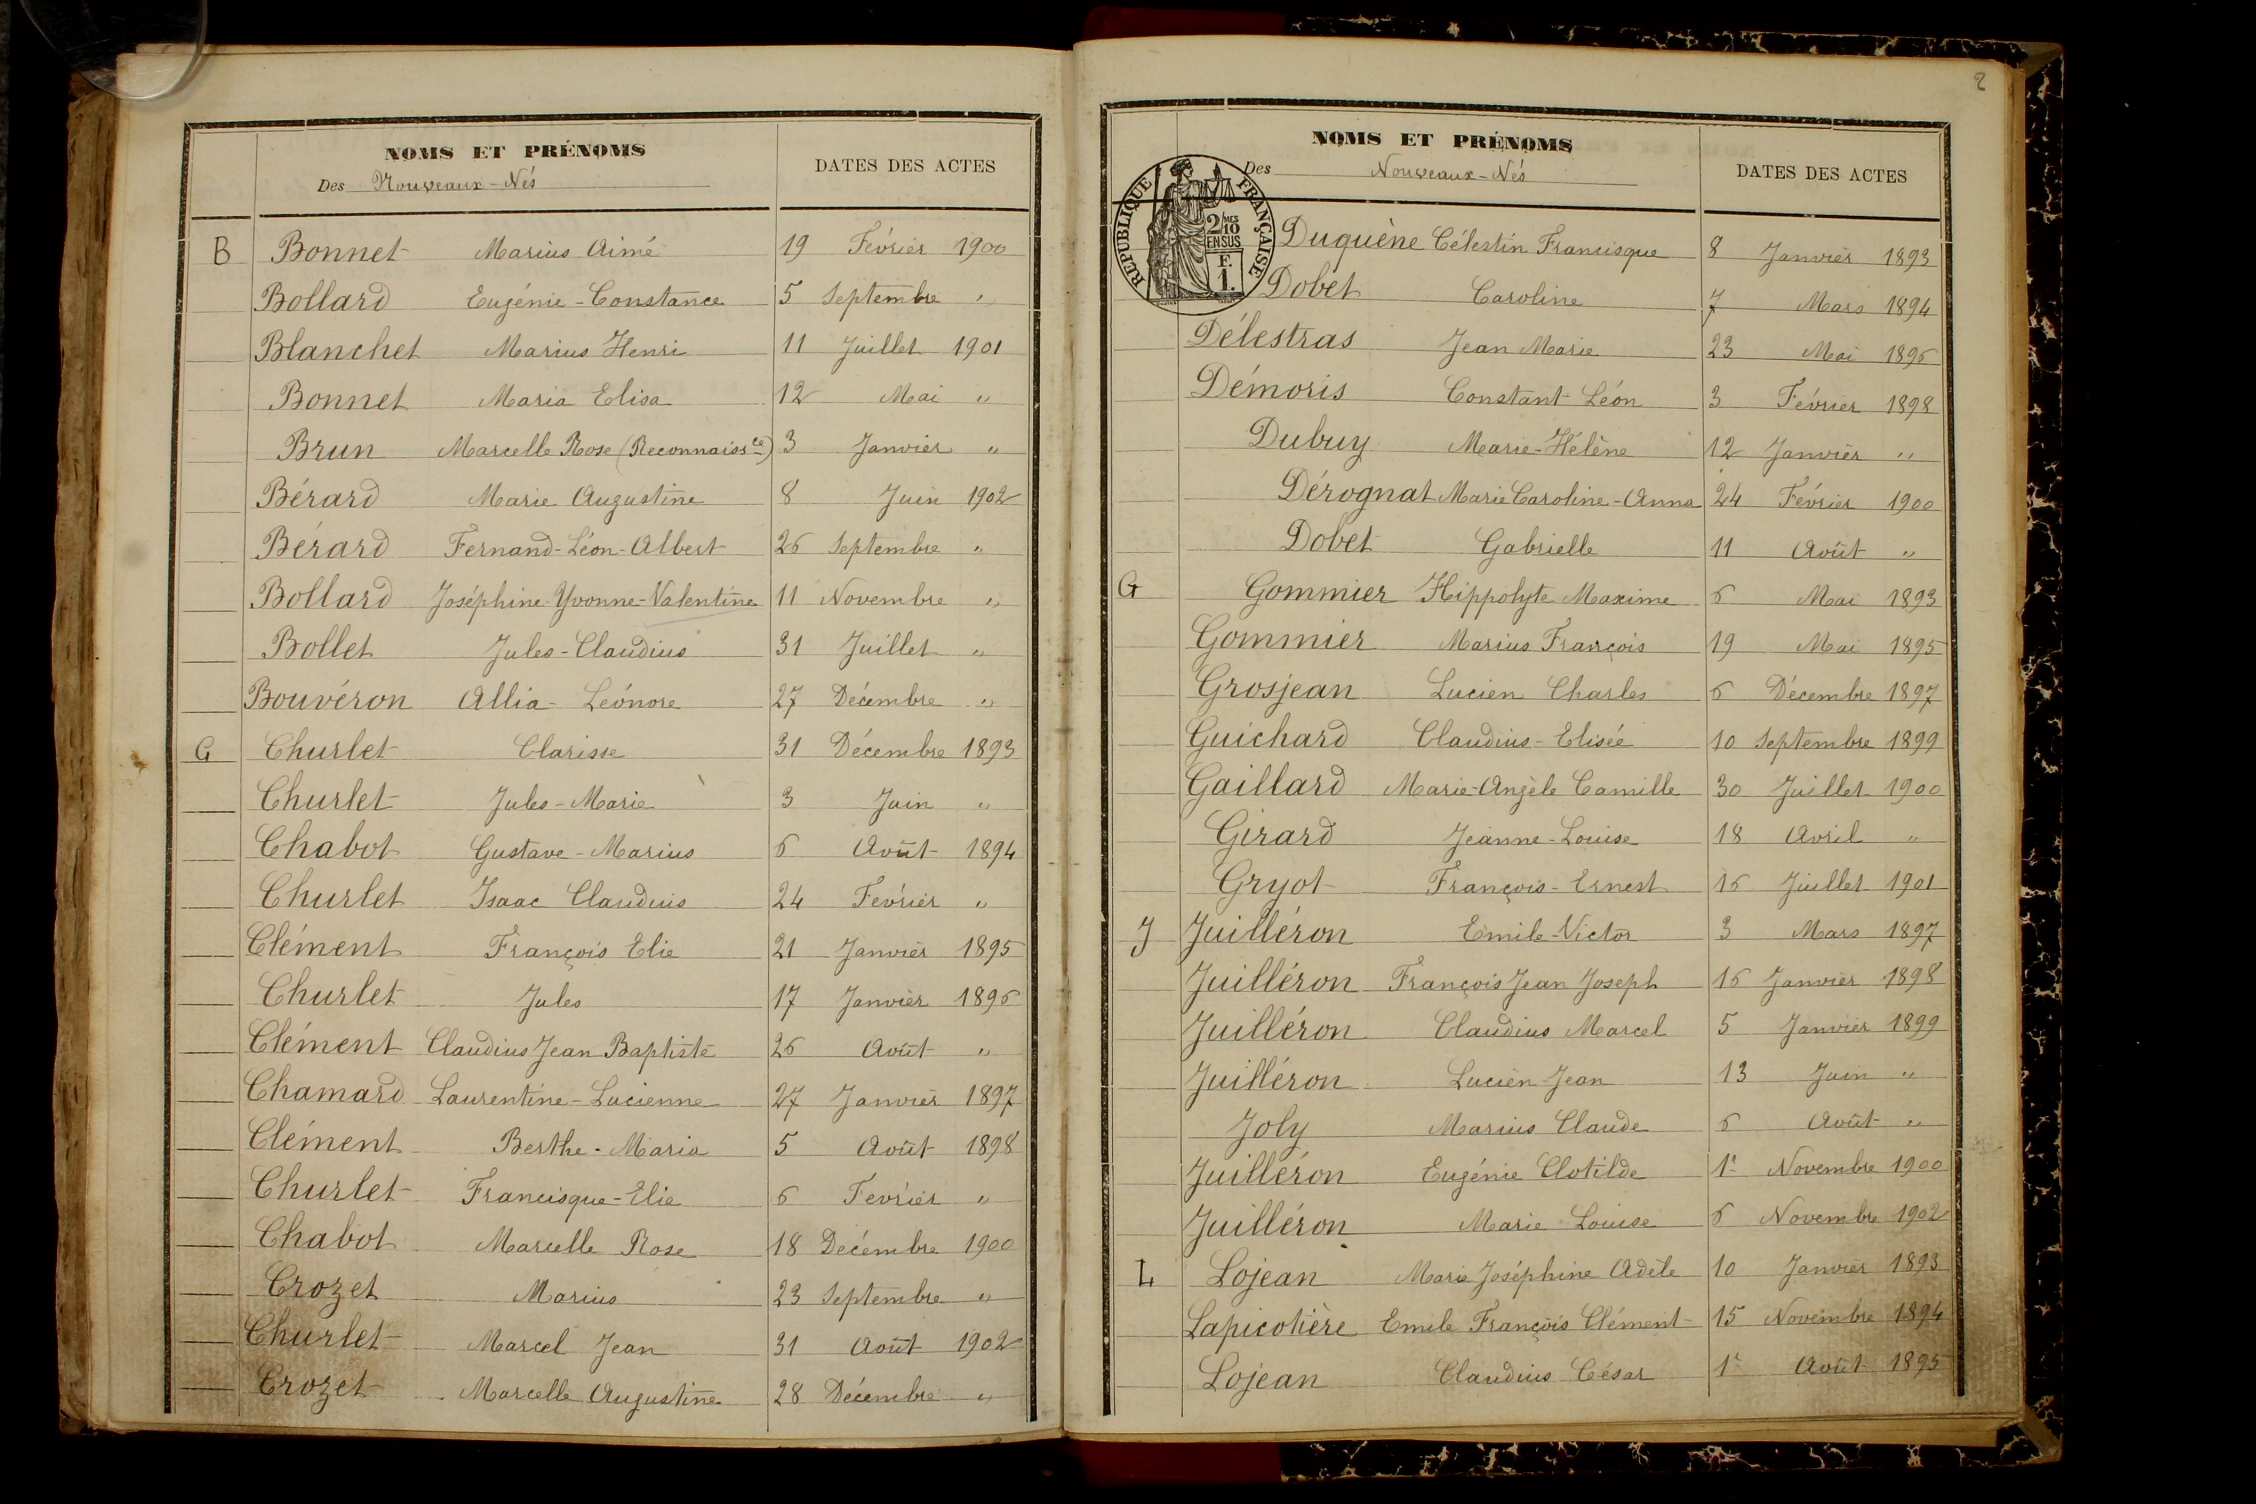 NOMS ET PRÉNOMS
Des Nouveaux-Nés
DATES DES ACTES
B Bonnet Marius Aimé 19 Février 1900
Bollard Eugénie-Constance 5 Septembre "
Blanchet Marius Henri 11 Juillet 1901
Bonnet Maria Elisa 12 Mai "
Brun Marcelle Rose (Reconnaissce) 3 Janvier "
Bérard Marie Augustine 8 Juin 1902
Bérard Fernand-Léon-Albert 26 Septembre "
Bollard Joséphine-Yvonne-Valentine 11 Novembre "
Bollet Jules-Claudius 31 Juillet "
Bouvéron Allia-Léonore 27 Décembre "
C Churlet Clarisse 31 Décembre 1893
Churlet Jules-Marie 3 Juin "
Chabot Gustave-Marius 6 Août 1894
Churlet Isaac Claudius 24 Février "
Clément François Elie 21 Janvier 1895
Churlet Jules 17 Janvier 1896
Clément Claudius Jean Baptiste 26 Août "
Chamard Laurentine-Lucienne 27 Janvier 1897
Clément Berthe-Maria 5 Août 1898
Churlet Francisque-Elie 6 Février "
Chabot Marcelle Rose 18 Décembre 1900
Crozet Marius 23 Septembre "
Churlet Marcel Jean 31 Août 1902
Crozet Marcelle Augustine 28 Décembre "
2
NOMS ET PRÉNOMS
Des Nouveaux-Nés
DATES DES ACTES
RÉPUBLIQUE FRANÇAISE
2/10 MES
EN SUS
F.
1.
Duquène Célestin Francisque 8 Janvier 1893
Dobet Caroline 7 Mars 1894
Délestras Jean Marie 23 Mai 1896
Démoris Constant Léon 3 Février 1898
Dubuy Marie-Hélène 12 Janvier "
Dérognat Marie Caroline-Anna 24 Février 1900
Dobet Gabrielle 11 Août "
G Gommier Hippolyte Maxime 6 Mai 1893
Gommier Marius François 19 Mai 1895
Grosjean Lucien Charles 6 Décembre 1897
Guichard Claudius-Elisée 10 Septembre 1899
Gaillard Marie-Angèle Camille 30 Juillet 1900
Girard Jeanne-Louise 18 Avril "
Gryot François-Ernest 16 Juillet 1901
J Juilléron Emile-Victor 3 Mars 1897
Juilléron François Jean Joseph 16 Janvier 1898
Juilléron Claudius Marcel 5 Janvier 1899
Juilléron Lucien Jean 13 Juin "
Joly Marius Claude 6 Août "
Juilléron Eugénie Clotilde 1r Novembre 1900
Juilléron Marie Louise 6 Novembre 1902
L Lojean Marie Joséphine Adèle 10 Janvier 1893
Lapicotière Emile François Clément 15 Novembre 1894
Lojean Claudius César 1r Août 1895